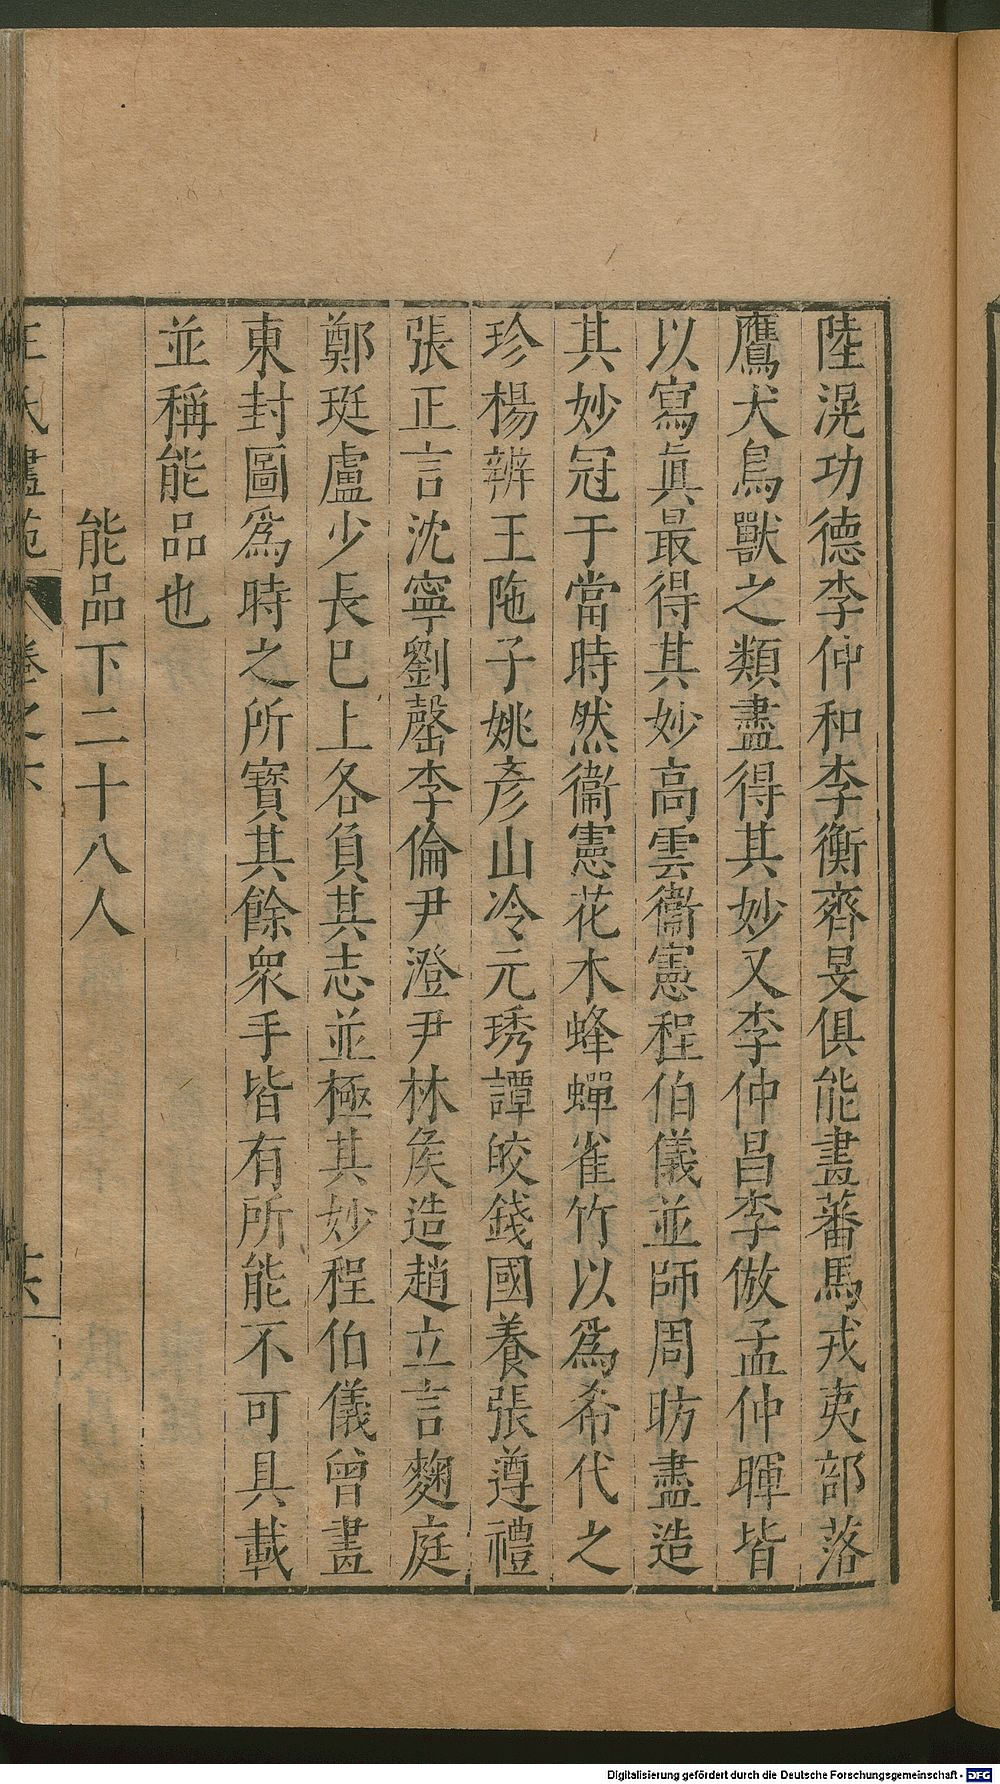 陸滉功德李仲和李衡齊旻俱能畫蕃馬戎夷部落
鷹犬鳥獸之類盡得其妙又李仲昌李倣孟仲暉皆
以寫眞最得其妙高雲衞憲程伯儀並師周昉盡造
其妙冠于當時然衞憲花木蜂蟬雀竹以爲希代之
珍楊辨王陁子姚彥山冷元琇譚皎錢國養張遵禮
張正言沈寧劉罄李倫尹澄尹林矦造趙立言麴庭
鄭珽盧少長巳上各負其志並極其妙程伯儀曾畫
東封圖爲時之所寶其餘衆手皆有所能不可具載
並稱能品也
能品下二十八人
王氏畫苑 卷之六
Digitalisierung gefördert durch die Deutsche Forschungsgemeinschaft - DFG